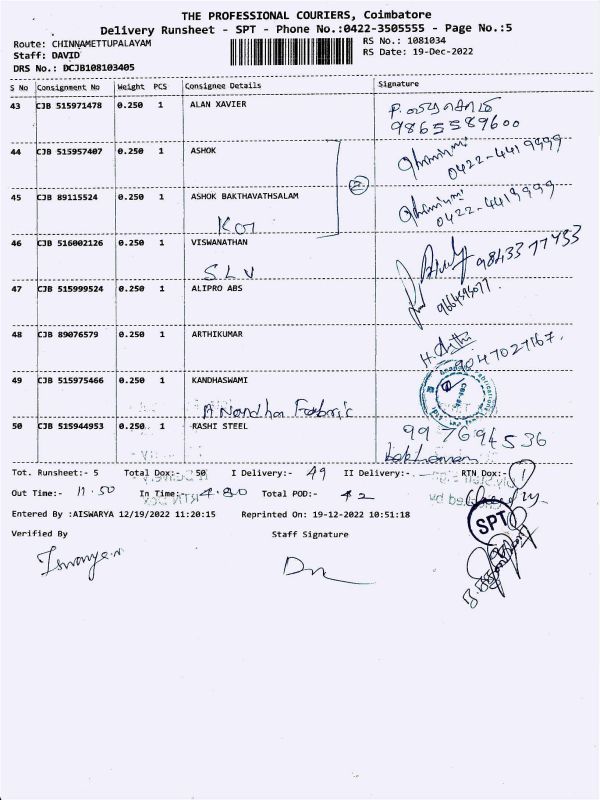 THE PROFESSIONAL COURIERS, Coimbatore
Delivery Runsheet - SPT - Phone No.:0422-3505555 - Page No.:5
Route: CHINNAMETTUPALAYAM
RS No.: 1081034
Staff: DAVID
RS Date: 19-Dec-2022
DRS No.: DCJB108103405
S No Consignment No Weight PCS Consignee Details Signature
43 CJB 515971478 0.250 1 ALAN XAVIER
9865589600
44 CJB 515957407 0.250 1 ASHOK
0422-4419999
45 CJB 89115524 0.250 1 ASHOK BAKTHAVATHSALAM
0422-4419999
46 CJB 516002126 0.250 1 VISWANATHAN
9843377433
SLV
47 CJB 515999524 0.250 1 ALIPRO ABS
48 CJB 89076579 0.250 1 ARTHIKUMAR
9047027167.
49 CJB 515975466 0.250 1 KANDHASWAMI
A Nandha Fabric
50 CJB 515944953 0.250 1 RASHI STEEL
997694536
Tot. Runsheet:- 5 Total Dox:- 50 I Delivery:- 49 II Delivery:- RTN Dox:- 1
Out Time:- 11.50 In Time:- Total POD:- 42
Entered By :AISWARYA 12/19/2022 11:20:15 Reprinted On: 19-12-2022 10:51:18
SPT
Verified By Staff Signature